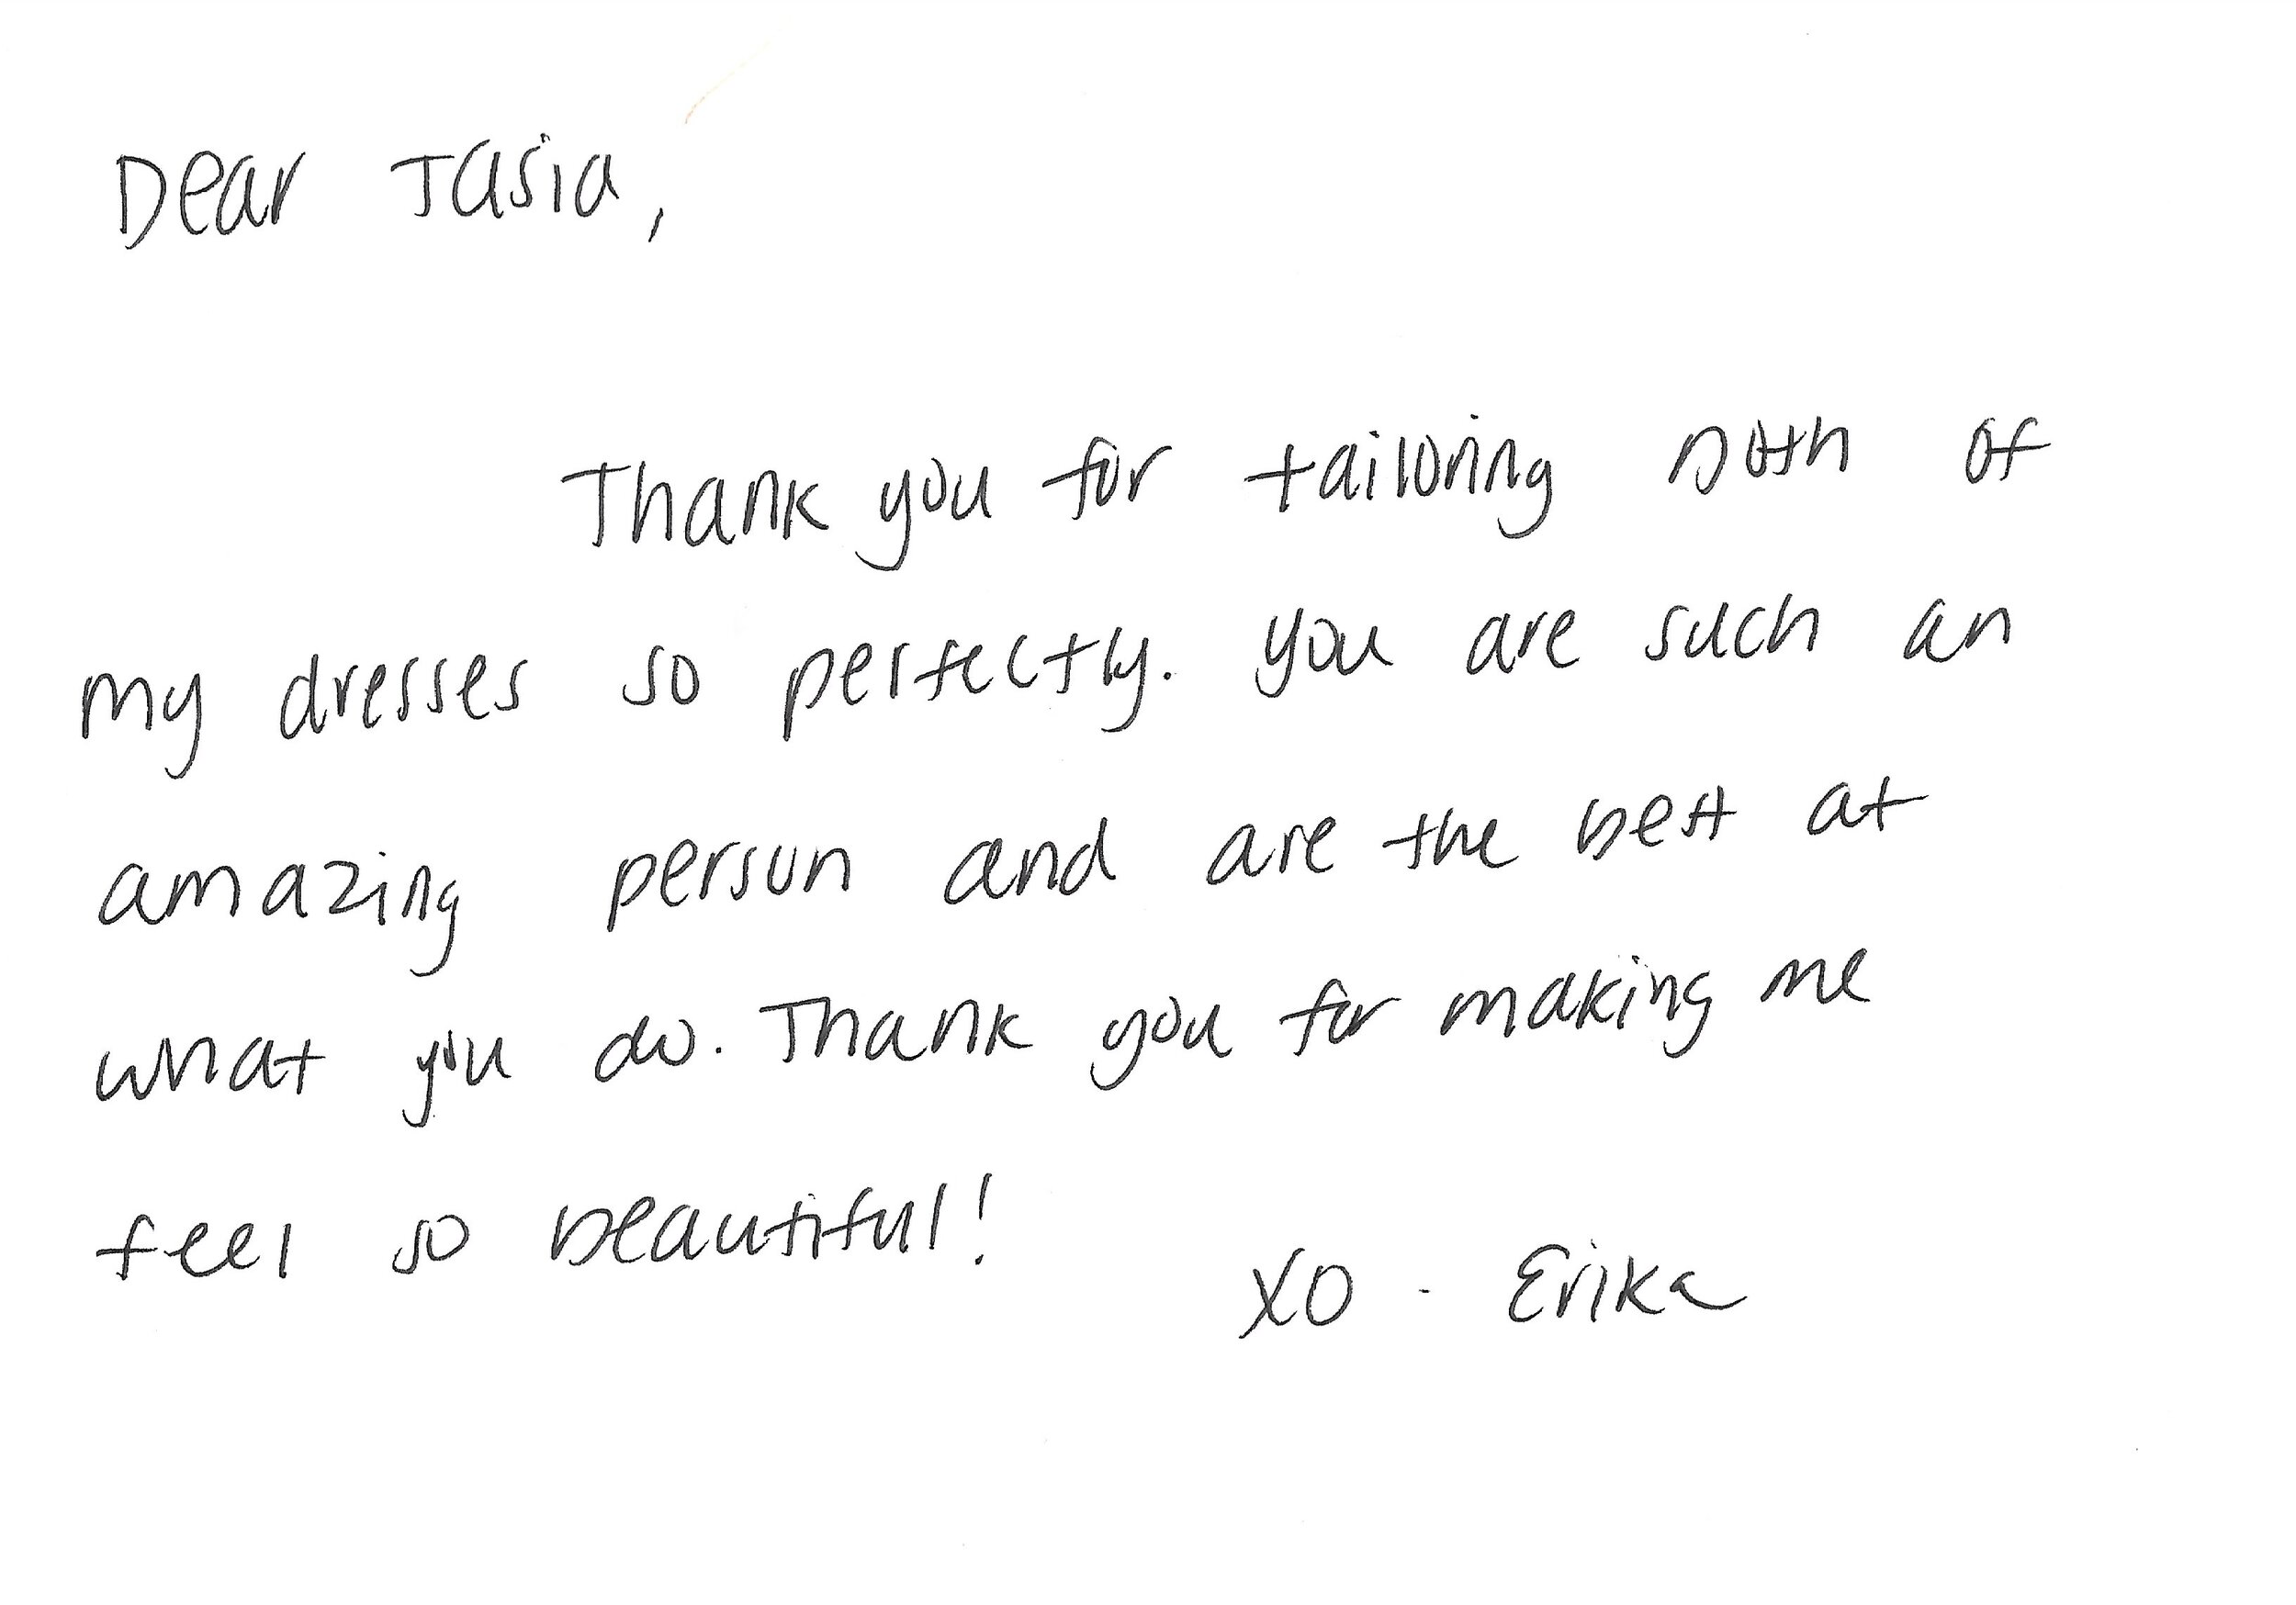 Dear Tasia,
Thank you for tailoring both of
my dresses so perfectly. you are such an
amazing person and are the best at
what you do. Thank you for making me
feel so beautiful!
XO - Erika